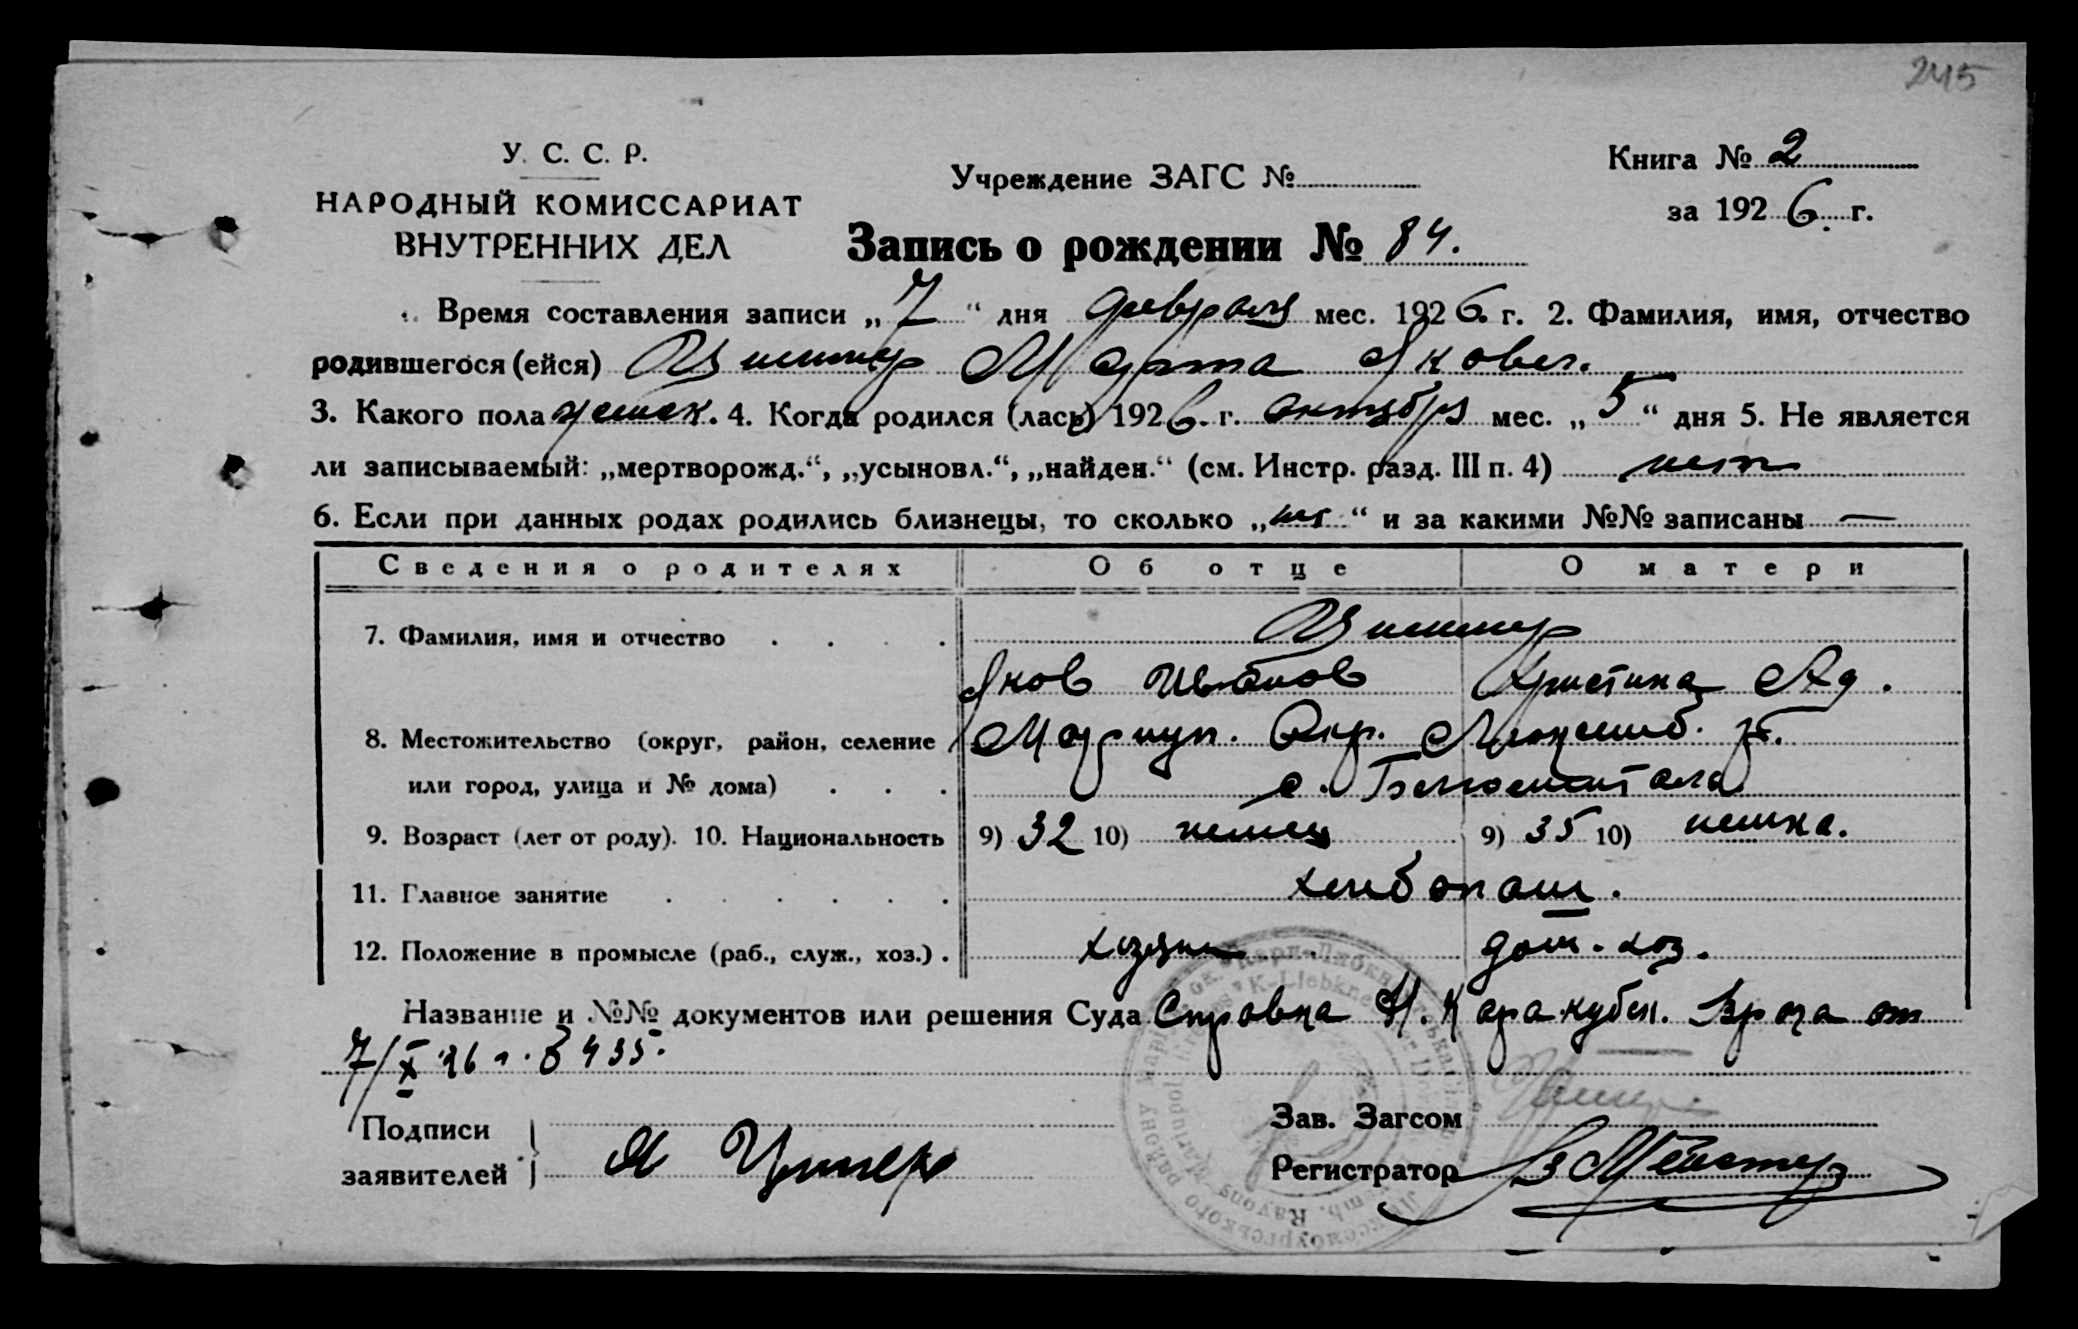 245
У. С. С. Р.
НАРОДНЫЙ КОМИССАРИАТ
ВНУТРЕННИХ ДЕЛ
Учреждение ЗАГС №
Книга № 2
за 1926 г.
Запись о рождении № 84.
Время составления записи „7“ дня февраля мес. 1926 г. 2. Фамилия, имя, отчество
родившегося (ейся) Марта Яковл.
3. Какого пола женск. 4. Когда родился (лась) 1926 г. октября мес. „5“ дня 5. Не является
ли записываемый: „мертворожд.“, „усыновл.“, „найден.“ (см. Инстр. разд. III п. 4) нет
6. Если при данных родах родились близнецы, то сколько „нет“ и за какими №№ записаны —
Сведения о родителях Об отце О матери
7. Фамилия, имя и отчество
Яков Иванов Христина Ад.
8. Местожительство (округ, район, селение Мариуп. Окр. Люксемб. р.
или город, улица и № дома) с.
9. Возраст (лет от роду). 10. Национальность 9) 32 10) немец 9) 35 10) немка.
11. Главное занятие хлебопаш.
12. Положение в промысле (раб., служ., хоз.) хозяин дом. хоз.
Название и №№ документов или решения Суда Справка Н. Каракубск. Врача от
7/X 26 г. 435.
Подписи
заявителей Я
Зав. Загсом
Регистратор